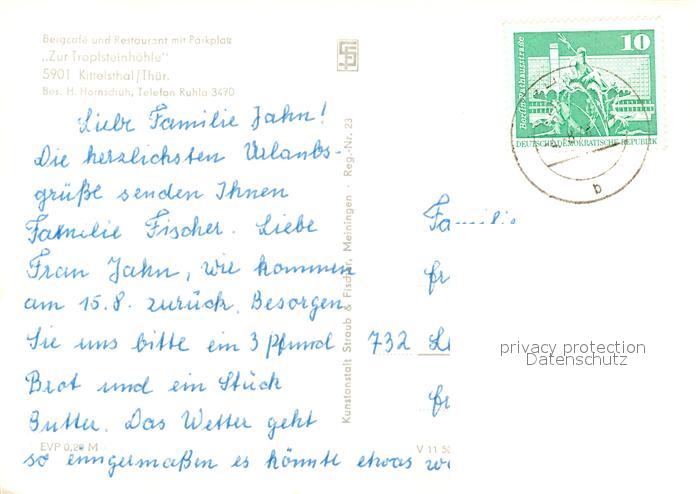 Bergcafé und Restaurant mit Parkplatz
„Zur Tropfsteinhöhle"
5901 Kittelsthal/Thür.
Bes. H. Hornschuh, Telefon Ruhla 3470
Liebe Familie Jahn!
Die herzlichsten Urlaubs-
grüße senden Ihnen
Familie Fischer. Liebe
Frau Jahn, wir kommen
am 15.8. zurück. Besorgen
Sie uns bitte ein 3 Pfund
Brot und ein Stück
Butter. Das Wetter geht
so einigermaßen es könnte etwas
EVP 0,20 M
Kunstanstalt Straub & Fischer, Meiningen · Reg.-Nr. 23
V 11 50
Berlin, Rathausstraße
10
DEUTSCHE DEMOKRATISCHE REPUBLIK
b
Familie
732
privacy protection
Datenschutz